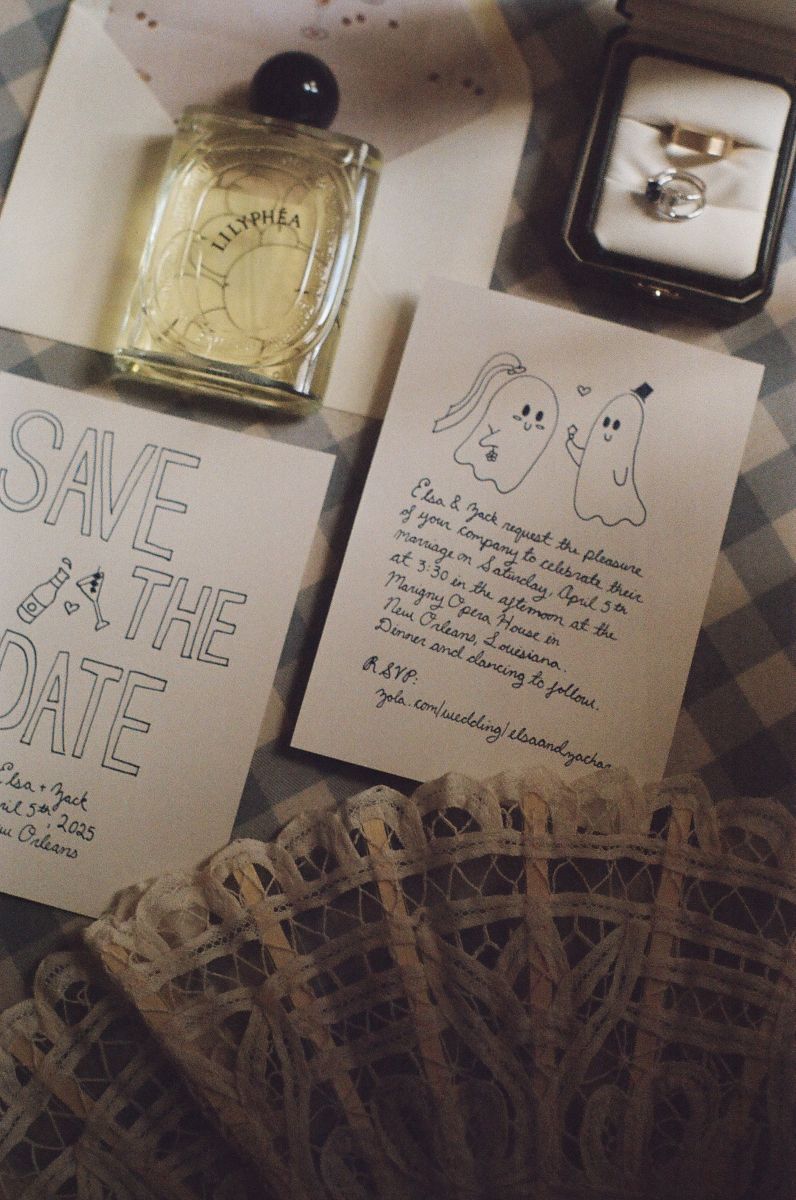 LILYPHÉA
SAVE
THE
DATE
Elsa + Zack
April 5th, 2025
New Orleans
Elsa & Zack request the pleasure
of your company to celebrate their
marriage on Saturday, April 5th
at 3:30 in the afternoon at the
Marigny Opera House in
New Orleans, Louisiana.
Dinner and dancing to follow.
RSVP:
zola.com/wedding/elsaandzachar